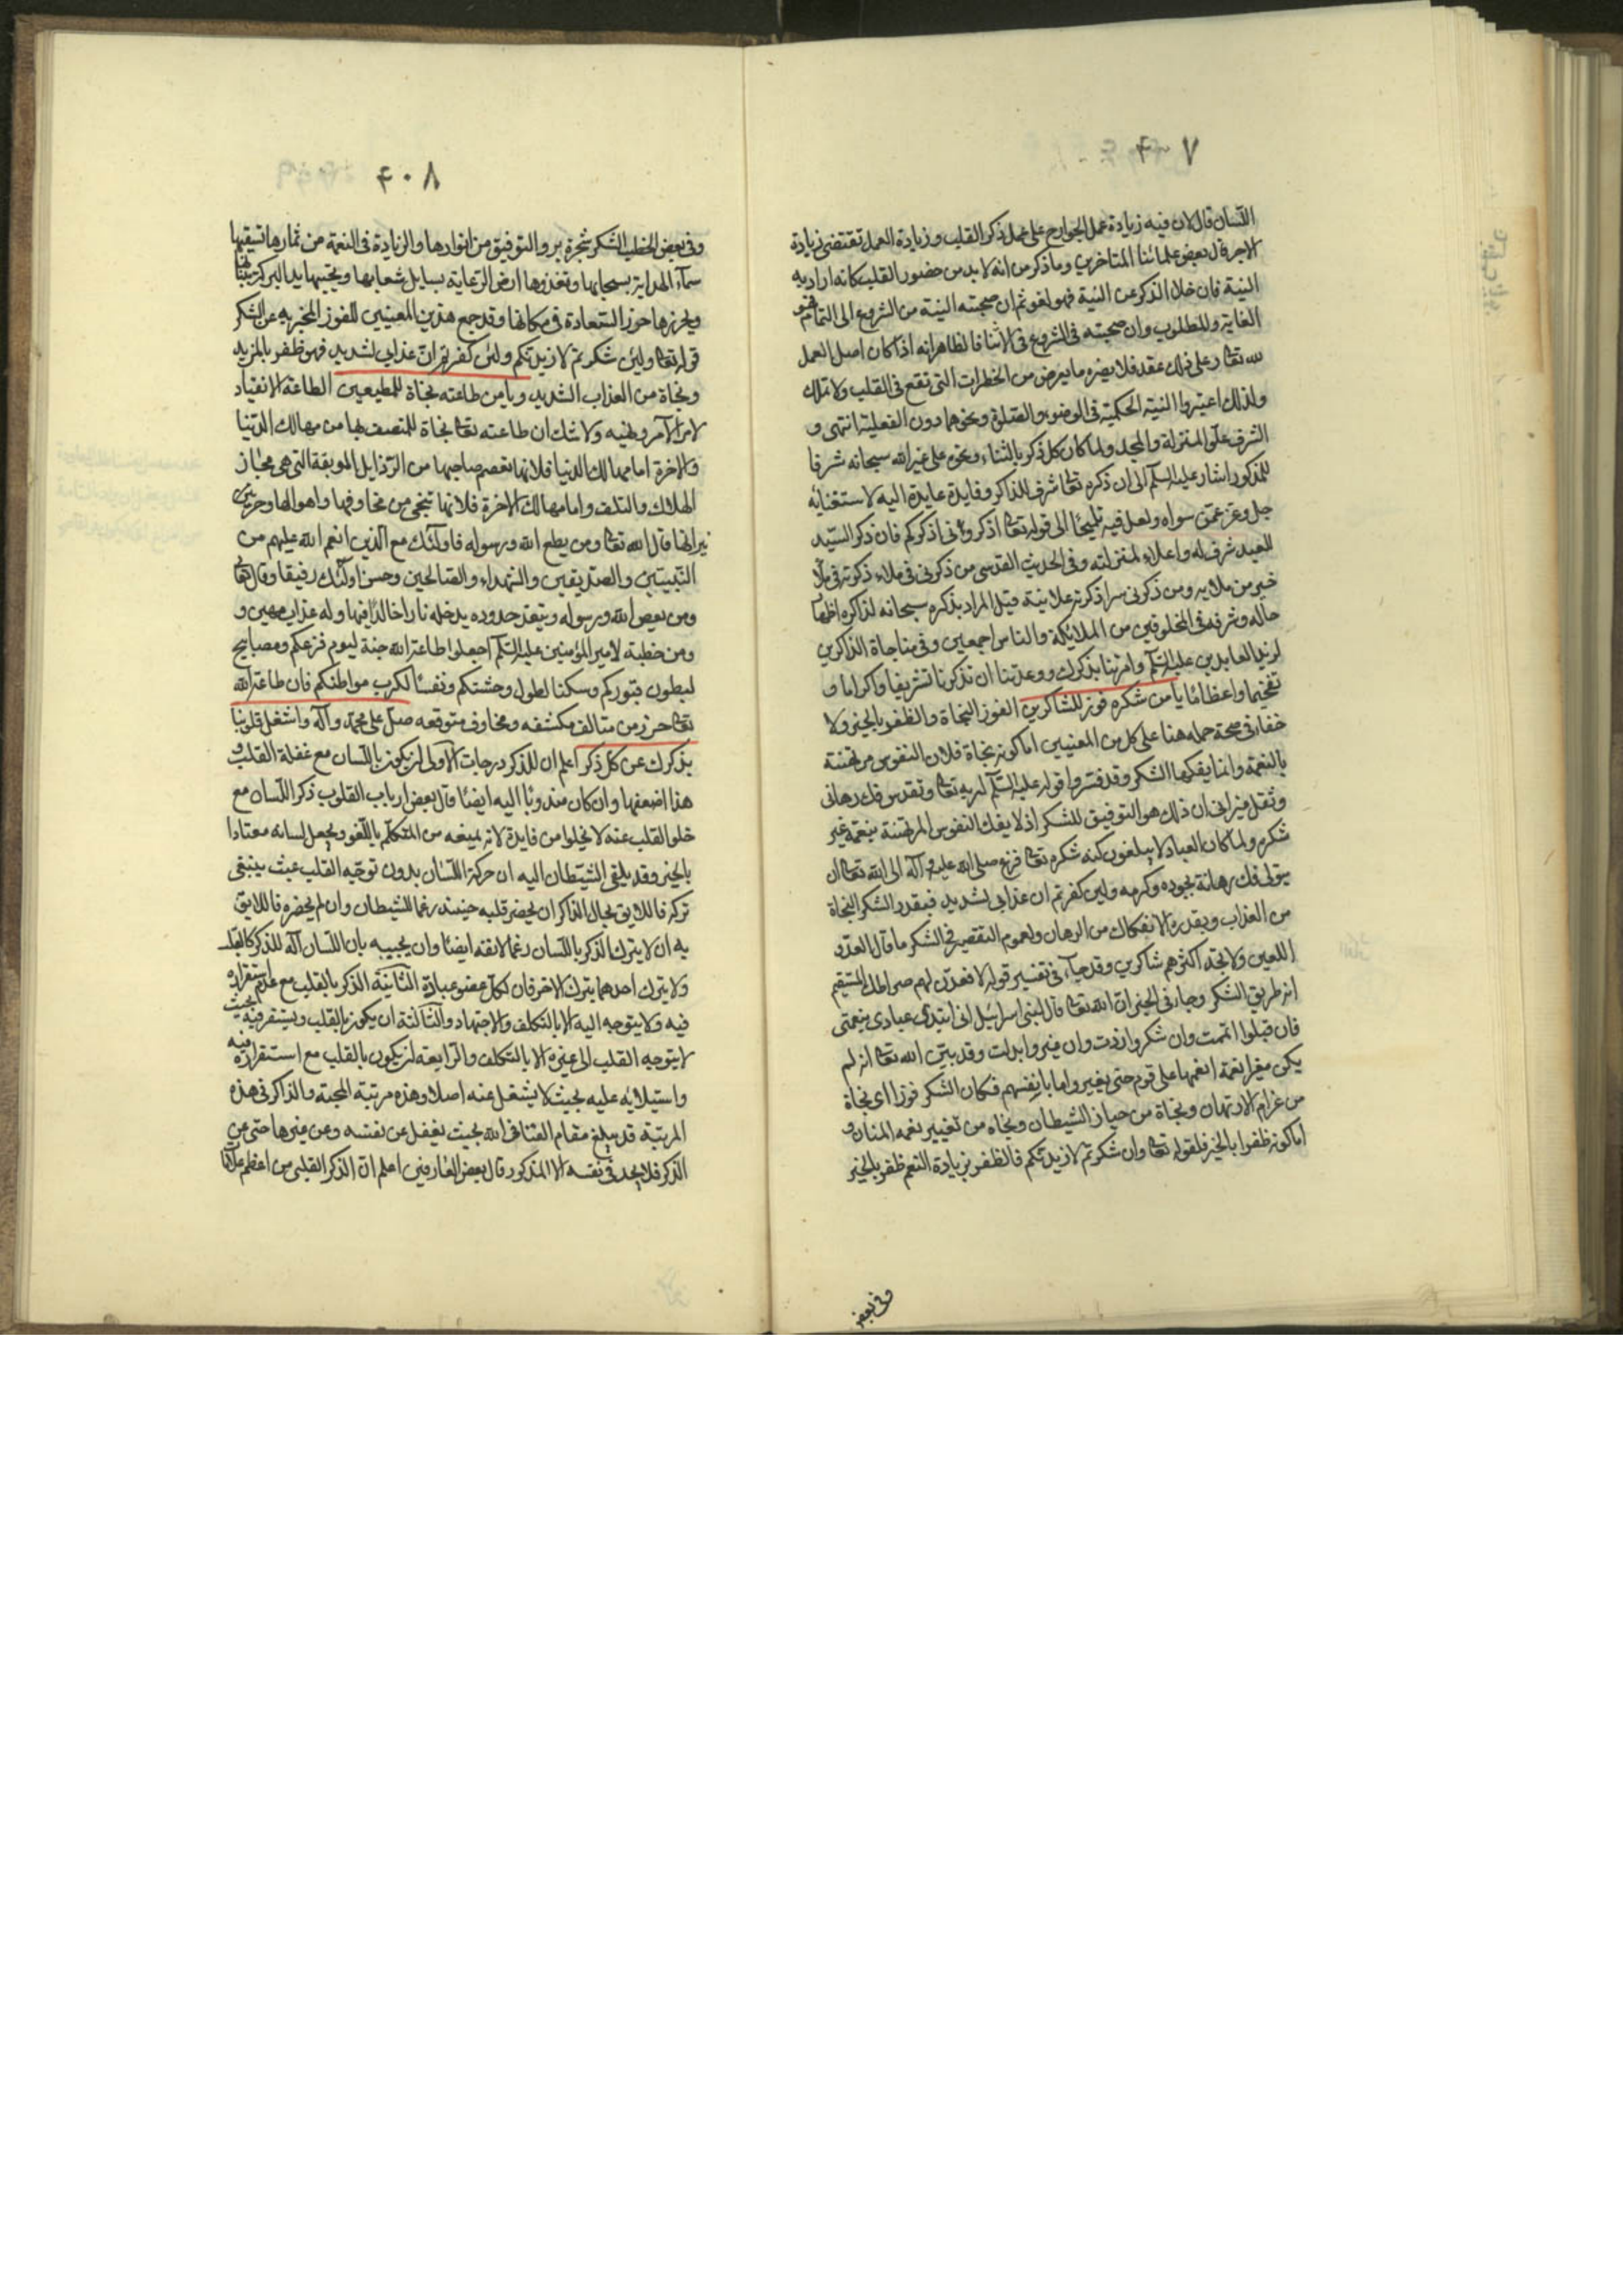 ۴۰۷
اللسان قال لان فيه زيادة عمل الجوارح على عمل ذكر القلب وزيادة العمل تقتضى زيادة
الاجر قال بعض علمائنا المتاخرين وما ذكر من انه لا بد من حضور القلب كانه اراد به
النية فان خلا الذكر عن النية فهو لغو ثم ان صحبته النية من الشروع الى التمام فهو
الغاية والمطلوب وان صحبته فى الشروع فى الاثنا فالظاهر انه اذا كان اصل العمل
لله تعا وعلى ذلك عقد فلا يضره ما يعرض من الخطرات التى تقع فى القلب ولا تملك
ولذلك اعتبروا النية الحكمية فى الوضوء والصلوة ونحوهما دون الفعلية انتهى و
الشرف علو المنزلة والمجد ولما كان كل ذكر بالثناء ونحوه على غير الله سبحانه شرفا
للمذكور اشار عليه السلم الى ان ذكره تعا شرف للذاكر وفايدة عايدة اليه لاستغنائه
جل وعز عمن سواه ولعل فيه تلميحا الى قوله تعا اذكرونى اذكركم فان ذكر السيد
للعبد شرف له واعلاء لمنزلته وفى الحديث القدسى من ذكرنى فى ملاء ذكرته فى ملأ
خير من ملايه ومن ذكرنى سرا ذكرته علانية قيل المراد بذكره سبحانه لذاكره اظهار
حاله وشرفه فى المخلوقين من الملائكة والناس اجمعين وفى مناجاة الذاكرين
لزين العابدين عليه السلم وامرتنا بذكرك ووعدتنا ان تذكرنا تشريفا واكراما و
تفخيما واعظاما يا من شكره فوز للشاكرين الفوز النجاة والظفر بالخير ولا
خفا فى صحة حمله هنا على كل من المعنيين اما كونه نجاة فلان النفوس مرتهنة
بالنعمة وانما يفكها الشكر وقد فسروا قوله عليه السلم لربه تعا وتقدس فك رهانى
وثقل ميزانى ان ذلك هو التوفيق للشكر اذ لا يفك النفوس المرتهنة بنعمة غير
شكره ولما كان العباد لا يبلغون كنه شكره تعا فزع صلى الله عليه وآله الى الله تعا ان
يتولى فك رهانة بجوده وكرمه ولئن كفرتم ان عذابى لشديد فبقدر الشكر النجاة
من العذاب وبقدره الانفكاك من الرهان ولعموم التقصير فى الشكر ما قال العدو
اللعين ولا تجد اكثرهم شاكرين وقد جاء فى تفسير قوله لاقعدن لهم صراطك المستقيم
انه طريق الشكر وجاء فى الخبر ان الله تعا قال لبنى اسرائيل انى ابتدئ عبادى بنعمتى
فان قبلوا اتممت وان شكروا زدت وان غيروا بدلت وقد بين الله تعا انه لم
يكن مغيرا نعمة انعمها على قوم حتى يغيروا ما بانفسهم فكان الشكر فوزا اى نجاة
من غرام الارتهان ونجاة من حياز الشيطان ونجاه من تغيير نعمه المنان و
اما كونه ظفرا بالخير فلقوله تعا وان شكرتم لازيدنكم فالظفر بزيادة النعم ظفر بالخير
وفى بعض
۴۰۸
وفى بعض الخطب الشكر شجرة بر والتوفيق من انوارها والزيادة فى النعمة من ثمارها تسقيها
سماء الهداية بسحابها وتغذوها ارض الرعاية بسايل شعابها ويجتبيها يد البركة
ويحرزها حوز السعادة فى مكانها وقد جمع هذين المعنيين للفوز المخبر به عن الشكر
قوله تعا ولئن شكرتم لازيدنكم ولئن كفرتم ان عذابى لشديد فهو ظفر بالمزيد
ونجاة من العذاب الشديد ويا من طاعته نجاة للمطيعين الطاعة الانقياد
لامر الآمر ونهيه ولا شك ان طاعته تعا نجاة للمتصف بها من مهالك الدنيا
والاخرة اما مهالك الدنيا فلانها تعصم صاحبها من الرذايل الموبقة التى هى مجاز
الهلاك والتلف واما مهالك الاخرة فلانها تنجى من مخاوفها واهوالها وحر
نيرانها قال الله تعا ومن يطع الله ورسوله فاولئك مع الذين انعم الله عليهم من
النبيين والصديقين والشهداء والصالحين وحسن اولئك رفيقا وقال تعالى
ومن يعص الله ورسوله ويتعد حدوده يدخله نارا خالدا فيها وله عذاب مهين و
ومن خطبة لامير المؤمنين عليه السلم اجعلوا طاعة الله جنة ليوم فزعكم ومصابيح
لبطون قبوركم وسكنا لطول وحشتكم ونفسا لكرب مواطنكم فان طاعة الله
تعا حرز من متالف مكتنفه ومخاوف متوقعه صل على محمد وآله واشغل قلوبنا
بذكرك عن كل ذكر اعلم ان للذكر درجات الاولى ان يكون باللسان مع غفلة القلب و
هذا اضعفها وان كان مندوبا اليه ايضا قال بعض ارباب القلوب ذكر اللسان مع
خلو القلب عنه لا يخلوا من فايدة لانه يمنعه من التكلم باللغو ويجعل لسانه معتادا
بالخير وقد يلقى الشيطان اليه ان حركة اللسان بدون توجه القلب عبث ينبغى
تركه فاللايق بحال الذاكر ان يحضر قلبه حينئذ رغما للشيطان وان لم يحضره فاللايق
به ان لا يترك الذكر باللسان رغما لانفه ايضا وان يجيبه بان اللسان آلة للذكر كالقلب
ولا يترك احدهما بترك الاخر فان لكل عضو عبادة الثانية الذكر بالقلب مع عدم استقراره
فيه ولا يتوجه اليه الا بالتكلف والاجتهاد والثالثة ان يكون بالقلب ويستقر فيه بحيث
لا يتوجه القلب الى غيره الا بالتكلف والرابعة ان يكون بالقلب مع استقراره فيه
واستيلائه عليه بحيث لا يشتغل عنه اصلا وهذه مرتبة المحبة والذاكر فى هذه
المرتبة قد يبلغ مقام الفنا فى الله بحيث يغفل عن نفسه وعن غيرها حتى عن
الذكر فلا يجد فى نفسه الا المذكور قال بعض العارفين اعلم ان الذكر القلبى من اعظم